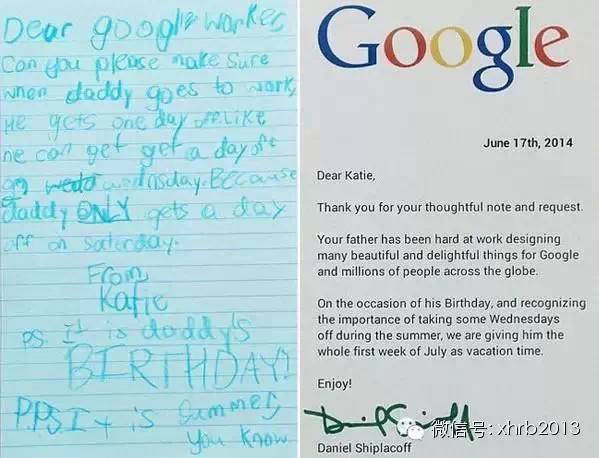 Dear google worker
Can you please make sure
when daddy goes to work,
He gets one day off. Like
he can get get a day off
on wedn wednsday. BEcause
daddy ONLY gets a day
off on saturday.
From,
Katie
P.S. It is daddy's
BIRTHDAY!
P.P.S. It is summer,
you know
Google
June 17th, 2014
Dear Katie,
Thank you for your thoughtful note and request.
Your father has been hard at work designing
many beautiful and delightful things for Google
and millions of people across the globe.
On the occasion of his Birthday, and recognizing
the importance of taking some Wednesdays
off during the summer, we are giving him the
whole first week of July as vacation time.
Enjoy!
微信号: xhrb2013
Daniel Shiplacoff